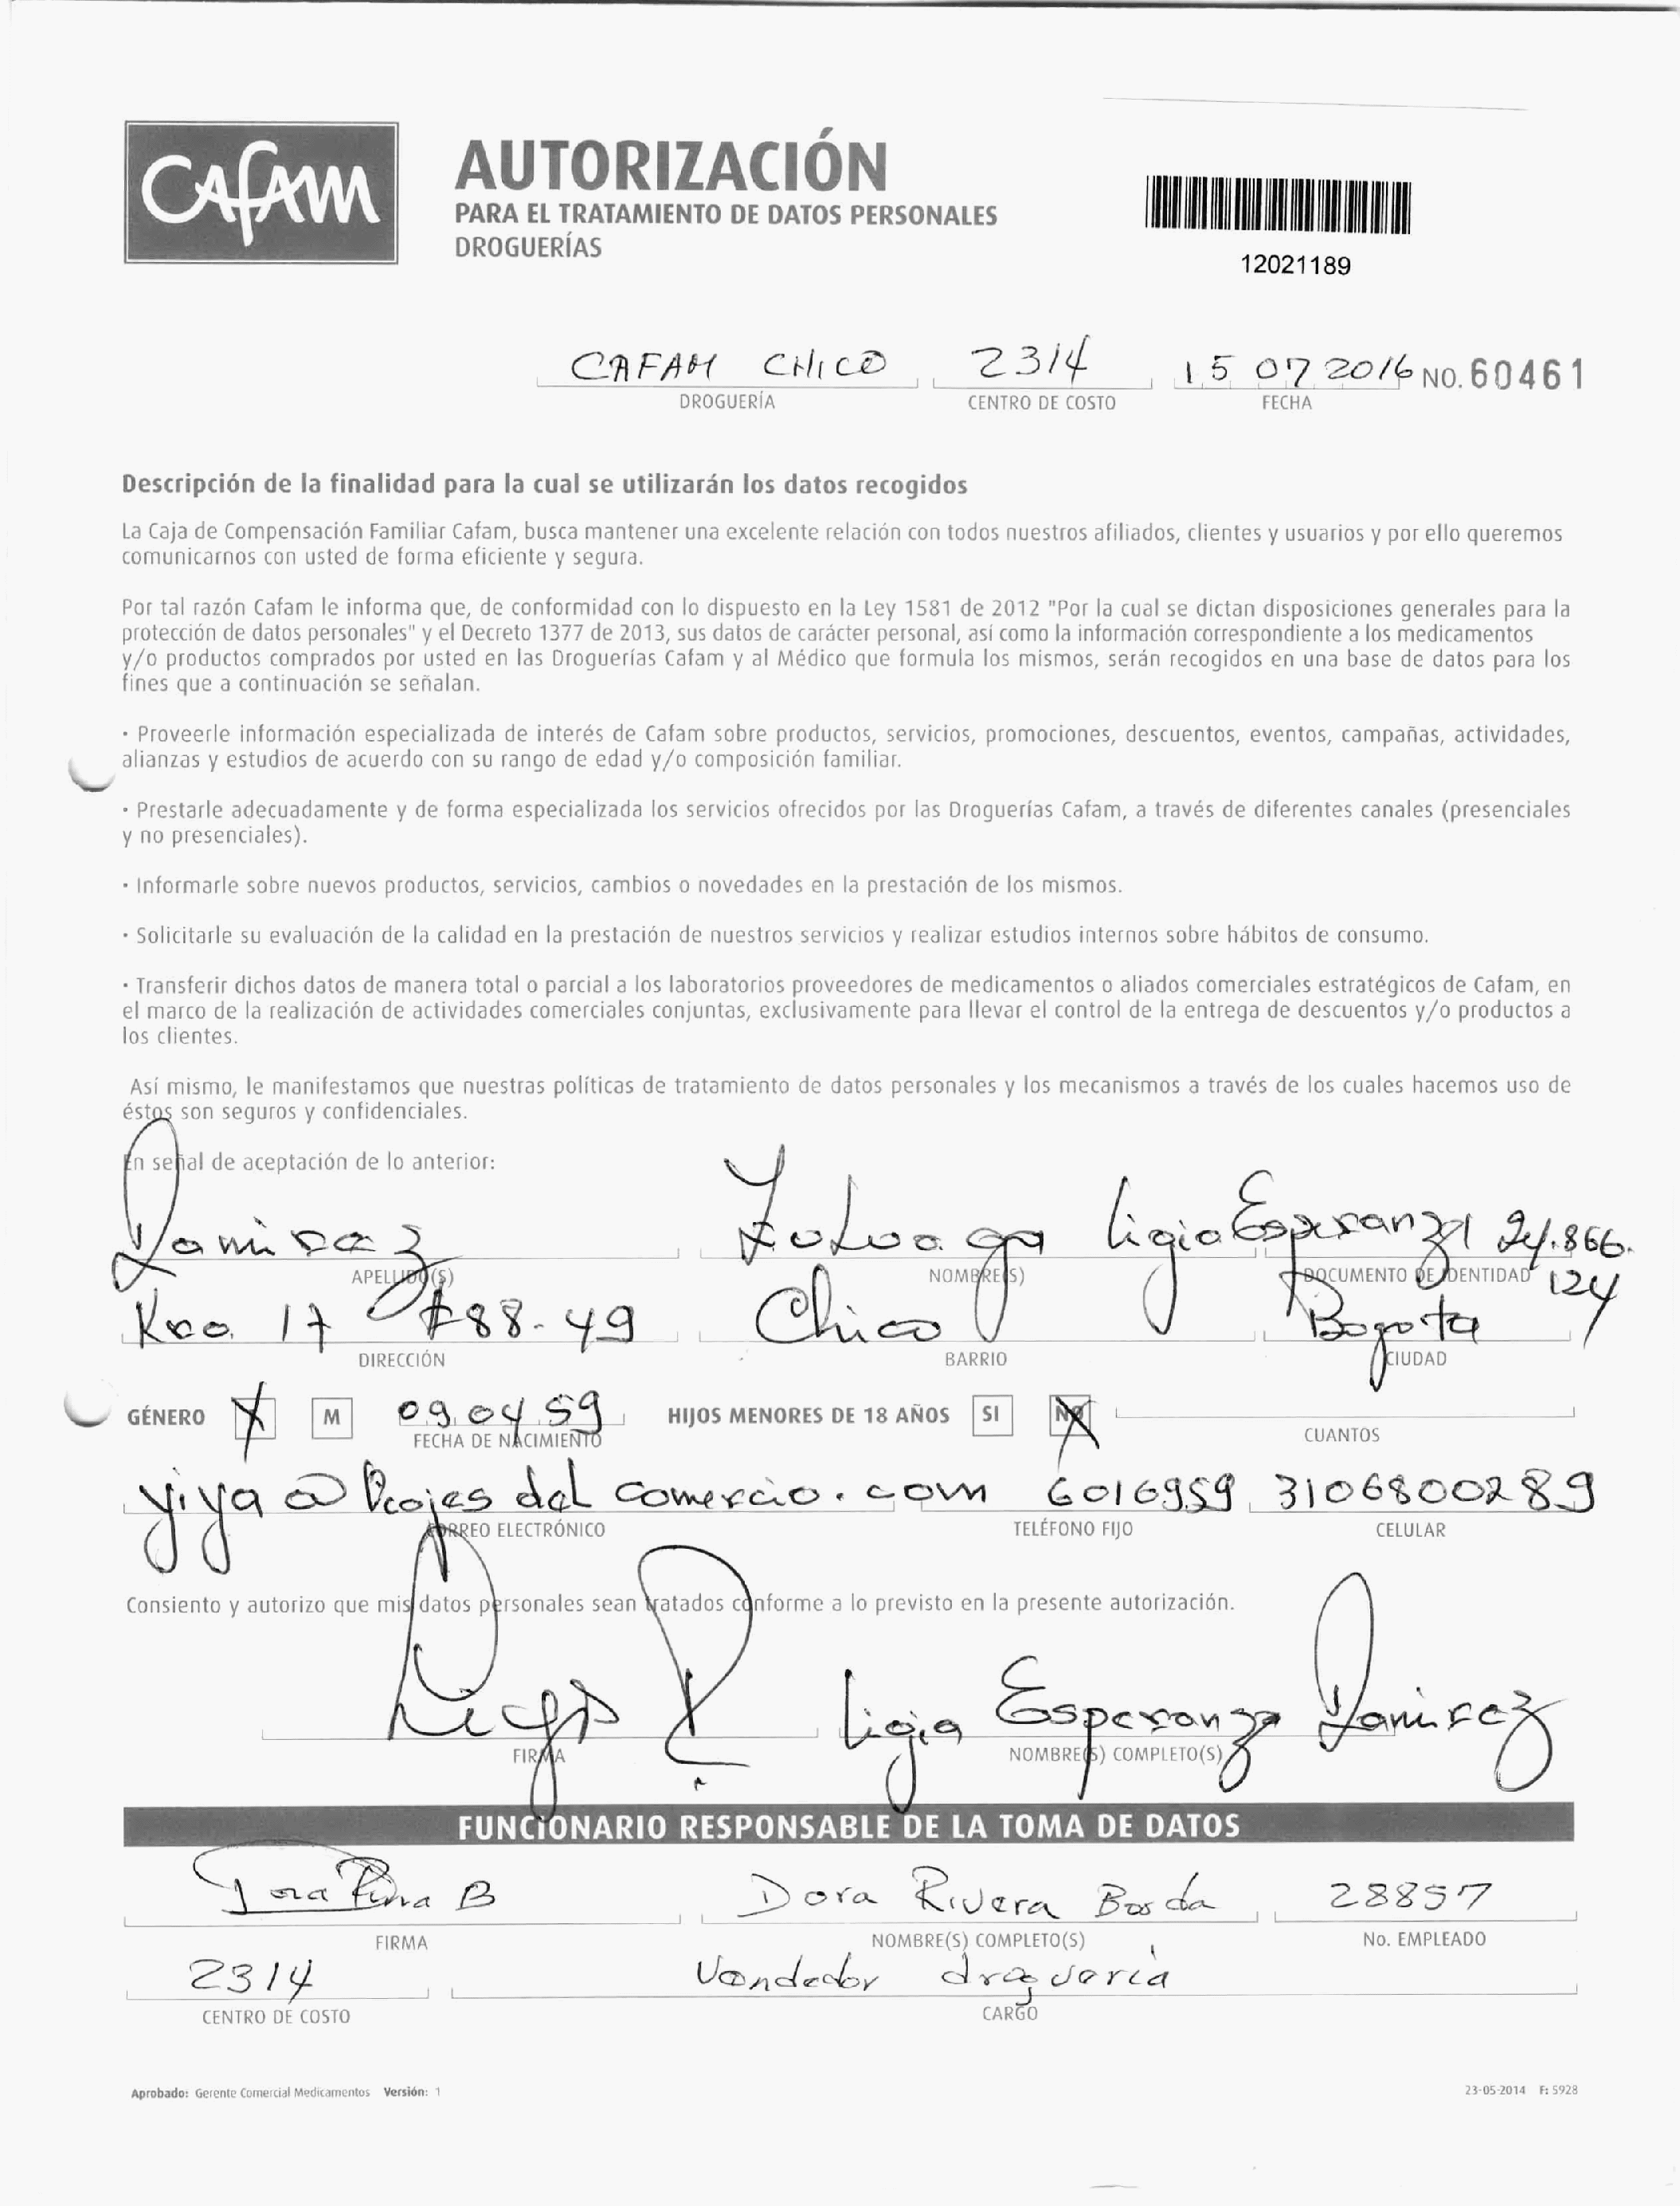 CAFAM
AUTORIZACIÓN
PARA EL TRATAMIENTO DE DATOS PERSONALES
DROGUERÍAS
12021189
CAFAM CHICO 2314 15 07 2016 NO. 60461
DROGUERÍA CENTRO DE COSTO FECHA
Descripción de la finalidad para la cual se utilizarán los datos recogidos
La Caja de Compensación Familiar Cafam, busca mantener una excelente relación con todos nuestros afiliados, clientes y usuarios y por ello queremos
comunicarnos con usted de forma eficiente y segura.
Por tal razón Cafam le informa que, de conformidad con lo dispuesto en la Ley 1581 de 2012 "Por la cual se dictan disposiciones generales para la
protección de datos personales" y el Decreto 1377 de 2013, sus datos de carácter personal, así como la información correspondiente a los medicamentos
y/o productos comprados por usted en las Droguerías Cafam y al Médico que formula los mismos, serán recogidos en una base de datos para los
fines que a continuación se señalan.
· Proveerle información especializada de interés de Cafam sobre productos, servicios, promociones, descuentos, eventos, campañas, actividades,
alianzas y estudios de acuerdo con su rango de edad y/o composición familiar.
· Prestarle adecuadamente y de forma especializada los servicios ofrecidos por las Droguerías Cafam, a través de diferentes canales (presenciales
y no presenciales).
· Informarle sobre nuevos productos, servicios, cambios o novedades en la prestación de los mismos.
· Solicitarle su evaluación de la calidad en la prestación de nuestros servicios y realizar estudios internos sobre hábitos de consumo.
· Transferir dichos datos de manera total o parcial a los laboratorios proveedores de medicamentos o aliados comerciales estratégicos de Cafam, en
el marco de la realización de actividades comerciales conjuntas, exclusivamente para llevar el control de la entrega de descuentos y/o productos a
los clientes.
Así mismo, le manifestamos que nuestras políticas de tratamiento de datos personales y los mecanismos a través de los cuales hacemos uso de
éstos son seguros y confidenciales.
En señal de aceptación de lo anterior:
Ramirez Zuluaga Ligia Esperanza 24.866.
APELLIDO(S) NOMBRE(S) DOCUMENTO DE IDENTIDAD 124
Kra 17 #88-49 Chico Bogota
DIRECCIÓN BARRIO CIUDAD
GÉNERO M 09 04 59 HIJOS MENORES DE 18 AÑOS SI NO
FECHA DE NACIMIENTO CUANTOS
yiya@ del comercio.com 6016959 3106800289
CORREO ELECTRÓNICO TELÉFONO FIJO CELULAR
Consiento y autorizo que mis datos personales sean tratados conforme a lo previsto en la presente autorización.
Ligia R Ligia Esperanza Ramirez
FIRMA NOMBRE(S) COMPLETO(S)
FUNCIONARIO RESPONSABLE DE LA TOMA DE DATOS
Dora Rivera B Dora Rivera Borda 28857
FIRMA NOMBRE(S) COMPLETO(S) No. EMPLEADO
2314 Vendedor drogueria
CENTRO DE COSTO CARGO
Aprobado: Gerente Comercial Medicamentos Versión: 1 23-05-2014 F: 5928